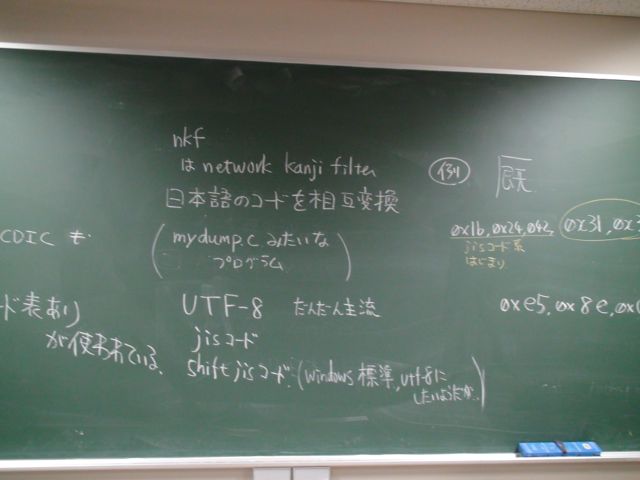 CDIC も
ード表あり
が使われている、
nkf
は network kanji filter
日本語のコードを相互変換
(mydump.c みたいな
プログラム)
UTF-8 だんだん主流
jisコード
shift jisコード. (windows 標準, utf-8に
したいようだが.)
例
0x1b, 0x24, 0x42, 0x31, 0x3
jisコード系
はじまり
0xe5, 0x8e, 0x